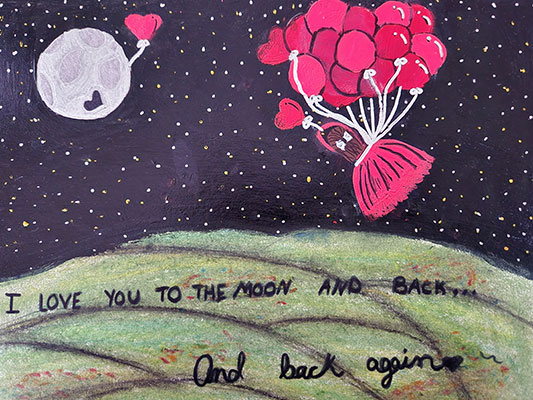 I LOVE YOU TO THE MOON AND BACK...
And back again